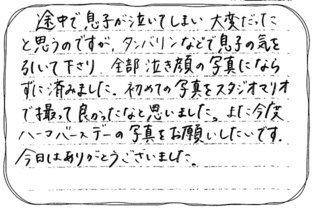 途中で息子が泣いてしまい大変だった
と思うのですが、タンバリンなどで息子の気を
引いて下さり 全部泣き顔の写真になら
ずに済みました。初めての写真をスタジオマリオ
で撮って良かったなと思いました。また今度
ハーフバースデーの写真をお願いしたいです。
今日はありがとうございました。